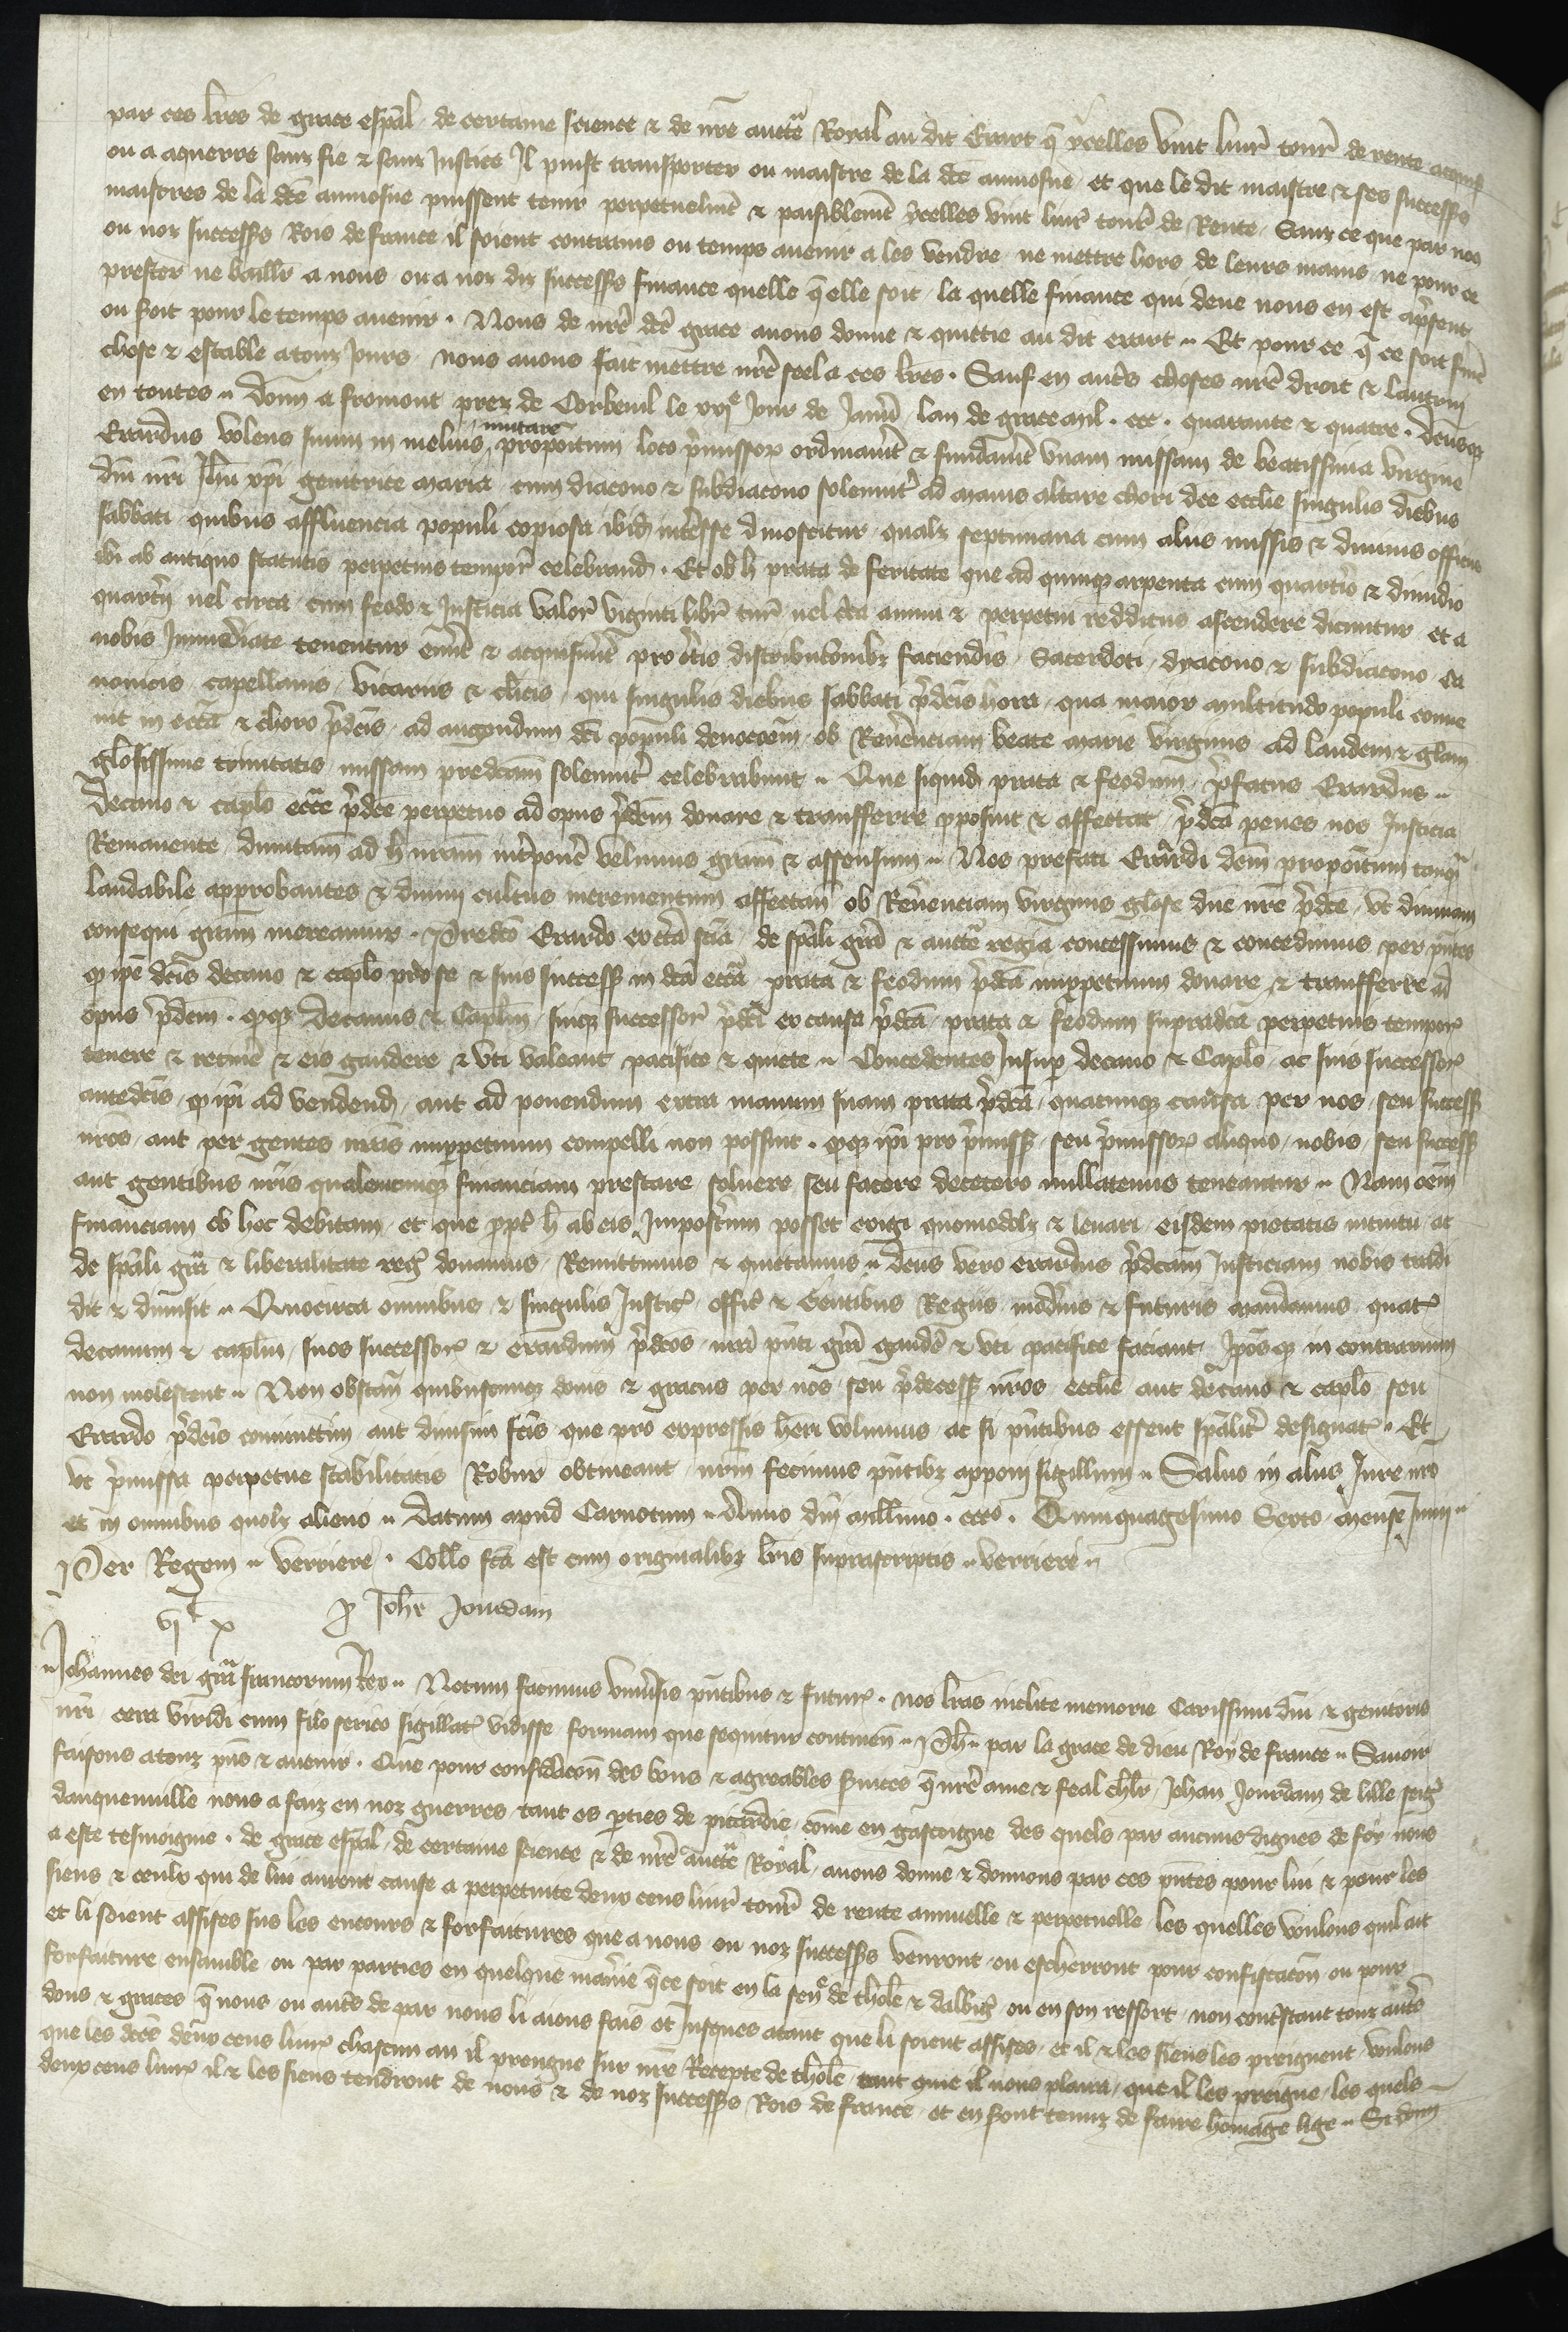 par ces lr̃es de grace esp̃al de certaine science & de nr̃e auctẽ Royal au dit Erart q̃ ycelles vint livr̃ tourñ de rente acquis
ou a aquerre sanz fie & sanz Justice Il puist transporter ou maistre de la dc̃e aumosne et que le dit maistre & ses successrs
maistres de la dc̃e aumosne puissent tenir perpetuelmẽt & paisiblemẽt ycelles vint livr̃ tourñ de Rente Sanz ce que par nos
ou noz successrs Rois de france il soient contrains ou temps avenir a les vendre ne mettre hors de leurs mains ne pour ce
prester ne baillr̃ a nous ou a noz diz successrs finance quelle q̃ elle soit la quelle finance qui deue nous en est a p̃sent
ou soit pour le temps avenir . Nous de nr̃e dc̃e grace avons donne & quittie au dit erart .. Et pour ce q̃ ce soit ferme
chose & estable a touz Jours nous avons fait mettre nr̃e seel a ces lr̃es . Sauf en autrs choses nr̃e droit & lautrui
en toutes .. Donn a fromont prez de Corbeuil le xxje Jour de Janvr̃ lan de grace mil . ccc . quarante & quatre . Deusq
mutare
Erardus volens suum in melius propoitum loco p̃missor̃ ordinavĩt & fundavĩt unam missam de beatissima virgine
dñi nr̃i Jhũ xp̃i genitrice maria cum diacono & subdiacono solemnit̃ ad maius altare chori dc̃e ecclie singulis diebus
sabbati quibus affluencia populi copiosa ibid int̃esse dinoscitur qualz septimana cum aliis missis & divinis officiis
ibi ab antiquo statutis perpetuis tempor̃ celebrand . Et ob h prata de feritate que ad quinq arpenta cum quartr̃io & dimidio
quartr̃ij vel circa cum feodo & Justicia valor̃ viginti libr̃ tur̃ vel c̃ca annui & perpetui redditus ascendere dicuntur et a
nobis Immediate tenentur emĩt & acquisivĩt pro c̃tis distributõnibz faciendis Sacerdoti dyacono & subdiacono ca
nonicis capellanis vicariis & cl̃icis qui singulis diebus sabbati p̃dc̃is hora qua maior multitudo populi conve
nit in ecc̃ia & choro p̃dc̃is ad augendum dc̃i populi devocõem ob Reverẽnciam beate marie virginis ad laudem & glam̃
glõsissime trinitatis missam predc̃am solemnit̃ celebrabunt .. Que siquid prata & feodum p̃fatus Erardus ..
Decano & caplõ ecc̃ie p̃dc̃e perpetuo ad opus p̃dc̃m donare & transferre pposuit & affectat p̃dc̃a penes nos Justicia
Remanente dumtam̃ ad h nr̃am int̃ponẽ velimus grãm & assensum .. Nos prefati Erardi dc̃m propoitum tanq̃
laudabile approbantes & divini cultus incrementum affectant̃ ob Reverẽnciam virginis glõse dñe nr̃e p̃dc̃e ut divinam
consequi grãm mereamur . Predc̃o Erardo ex c̃ta sc̃ia de sp̃ali grã & auctẽ regia concessimus & concedimus per p̃ntes
q ip̃e dc̃is decano & caplõ pro se & suis successz in dc̃a ecc̃ia prata & feodum p̃dc̃a imppetuum donare & transferre ad
opus p̃dc̃m . q̃q Decanus & Caplm̃ suiq successor̃ p̃dc̃i ex causa p̃dc̃a prata & feodum supradc̃a perpetuis tempor̃
tenere & retinẽ & eis gaudere & uti valeant pacifice & quiete .. Concedentes Insup decano & Caplõ ac suis successor̃
antedc̃is q ip̃i ad vendend aut ad ponendum extra manum suam prata p̃dc̃a quacunq causa per nos seu successz
nr̃os aut per gentes nr̃as imppetuum compelli non possint . q̃q ip̃i pro p̃missz seu p̃missor̃ aliquo nobis seu successz
aut gentibus nr̃is qualencunq financiam prestare solvere seu facere decetero nullatenus teneantur .. Nam om̃em
financiam ob hoc debitam et que p̃pt̃ h ab eis Imposterum posset exigi quomodolz & levari eisdem pietatis intuitu ac
de sp̃ali grã & liberalitate reg̃ donamus Remittimus & quietamus .. Dc̃us vero erardus p̃dc̃am Justiciam nobis tradi
dit & dimisit .. Quocirca omnibus & singulis Justic̃ offic̃ & Gentibus Regiis mod̃nis & futuris mandamus quat̃
decanum & caplm̃ suos successor̃ & erardum p̃dc̃os nr̃a p̃nti grã gaudẽ & uti pacifice faciant Ip̃osq in contrarium
non molestent .. Non obstant̃ quibuscunq donis & graciis per nos seu p̃decessz nr̃os ecclie aut decano & caplõ seu
Erardo p̃dc̃is coniunctim aut divisim fc̃is que pro expressis heri volumus ac si p̃ntibus essent sp̃alit̃ designat̃ .. Et
ut p̃missa perpetue stabilitatis Robur obtineant nr̃m fecimus p̃ntibz apponi sigillum .. Salvo in aliis Jure nr̃o
et in omnibus quolz alieno .. Datum apud Carnotum .. Anno dñi mill̃imo . ccco . Quinquagesimo Sexto mense Junii ..
Per Regem .. verriere . Coll̃o fc̃a est cum originalibz lr̃is suprascriptis .. verriere ..
vj c x p Joh̃e Jourdain
.. Johannes dei grã francorum Rex .. Notum facimus uniṽsis p̃ntibus & futur̃ . nos lr̃as inclite memorie Carissimi dñi & genitoris
nr̃i cera viridi cum filo serico sigillat̃ vidisse formam que sequitur continen̄ .. Ph̃ .. par la grace de dieu Roy de france .. Savoir
faisons a touz p̃ns & avenir . Que pour considãcõn des bons & agreables s̃vices q̃ nr̃e ame & feal ch̃lr̃ Jehan Jourdain de lille seigr̃
dauquenville nous a faiz en noz guerres tant es p̃ties de picardie cõme en gascoigne des quels par aucuns dignes de foy nous
a este tesmoigne . de grace esp̃al de certaine science & de nr̃e auctẽ Royal avons donne & donnons par ces p̃ntes pour lui & pour les
siens & ceulx qui de lui auront cause a perpetuite deux cens livr̃ tourñ de rente annuelle & perpetuelle les quelles voulons quil ait
et li soient assises sus les encours & forfaitures que a nous ou noz successrs venront ou escherront pour confiscatõn ou pour
forfaiture ensamble ou par parties en quelque manie q̃ ce soit en la sen̄ de thol̃e & dalbig̃ ou en son ressort non cont̃stant touz autrs
dons & graces q̃ nous ou autrs de par nous li aions fais et Jusques atant que li soient assises et il & les siens les preignent voulons
que les dc̃es deux cens livr̃ chascun an il prengne sur nr̃e Recepte de thol̃e tant que il nous plaira que il les preigne les quels
deux cens livr̃ il & les siens tendront de nous & de noz successrs Rois de france et en seront tenuz de faire homãge lige .. Si donn